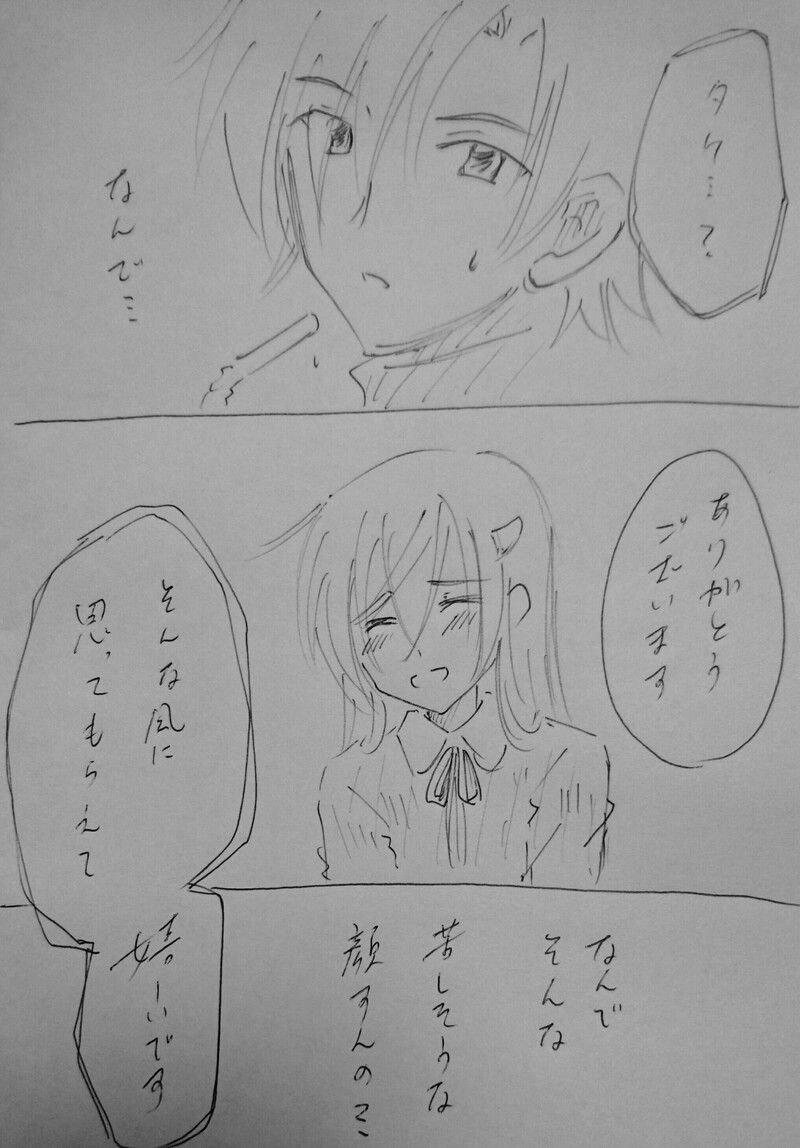 タケ…?
なんで…
ありがとう
ございます
そんな風に
思ってもらえて
嬉しいです
なんで
そんな
苦しそうな
顔すんの…